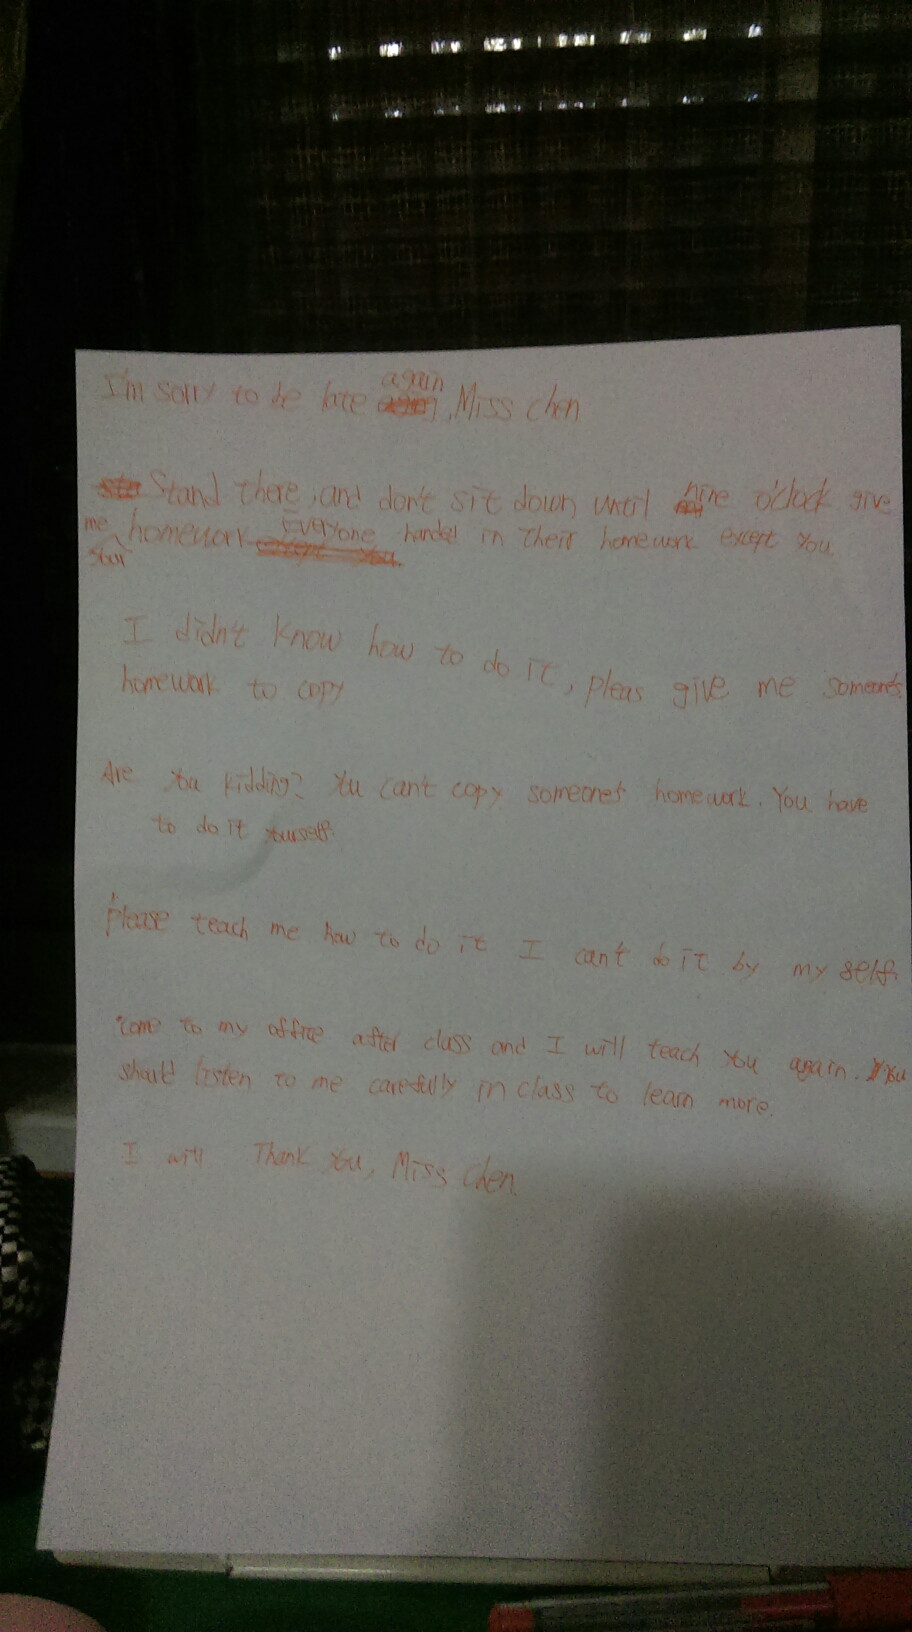 I'm sorry to be late again, Miss chen
Stand there, and don't sit down until nine o'clock give
me your homework Everyone handed in their homework except you
I didn't know how to do it, pleas give me someone's
homework to copy
Are you kidding? You can't copy someone's homework. You have
to do it yourself.
please teach me how to do it I can't do it by my self.
come to my office after class and I will teach you again. You
should listen to me carefully in class to learn more.
I will Thank you, Miss Chen.